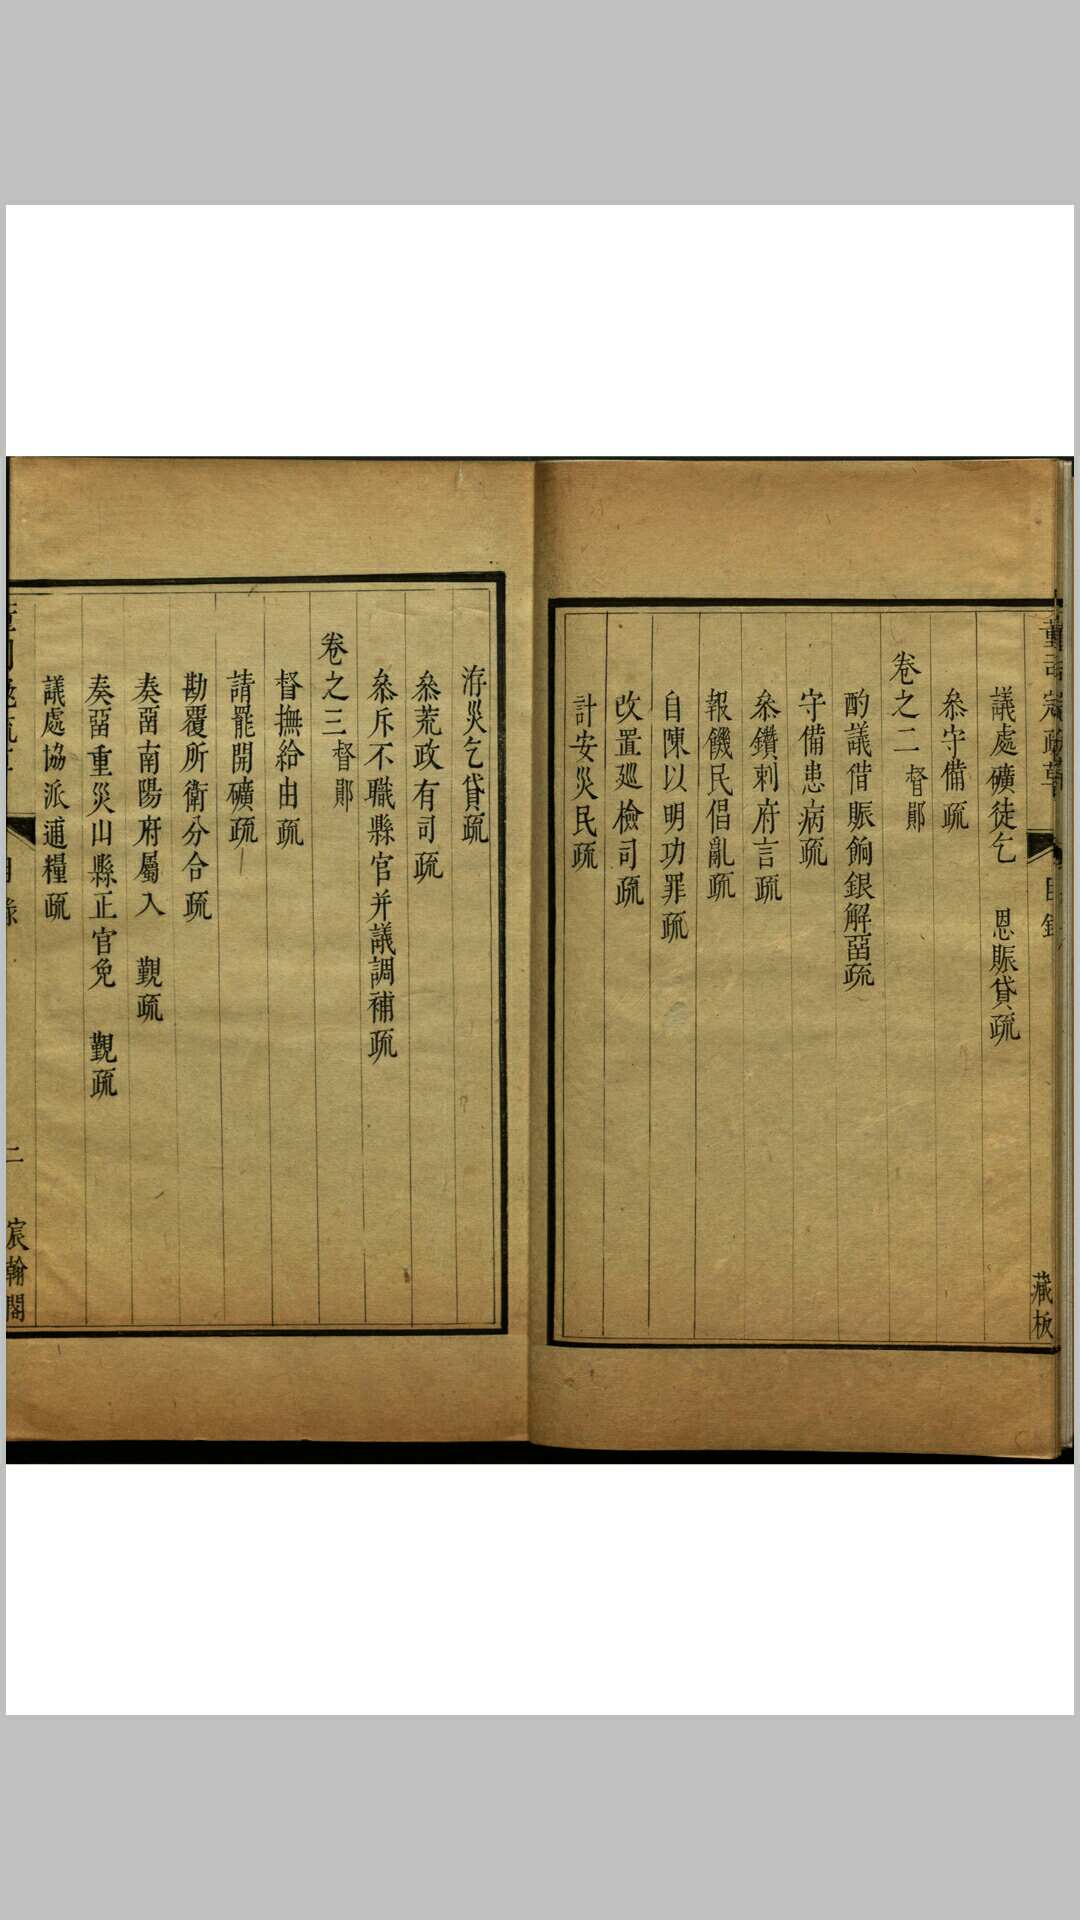 藏板
議處礦徒乞　恩賑貸疏
叅守備疏
卷之二督鄖
酌議借賑餉銀解畱疏
守備患病疏
叅鑽刺府言疏
報饑民倡亂疏
自陳以明功罪疏
改置廵檢司疏
計安災民疏
洊災乞貸疏
叅荒政有司疏
叅斥不職縣官并議調補疏
卷之三督鄖
督撫給由疏
請罷開礦疏
勘覆所衛分合疏
奏畱南陽府屬入　覲疏
奏畱重災山縣正官免　覲疏
議處協派逋糧疏
二
宸翰閣